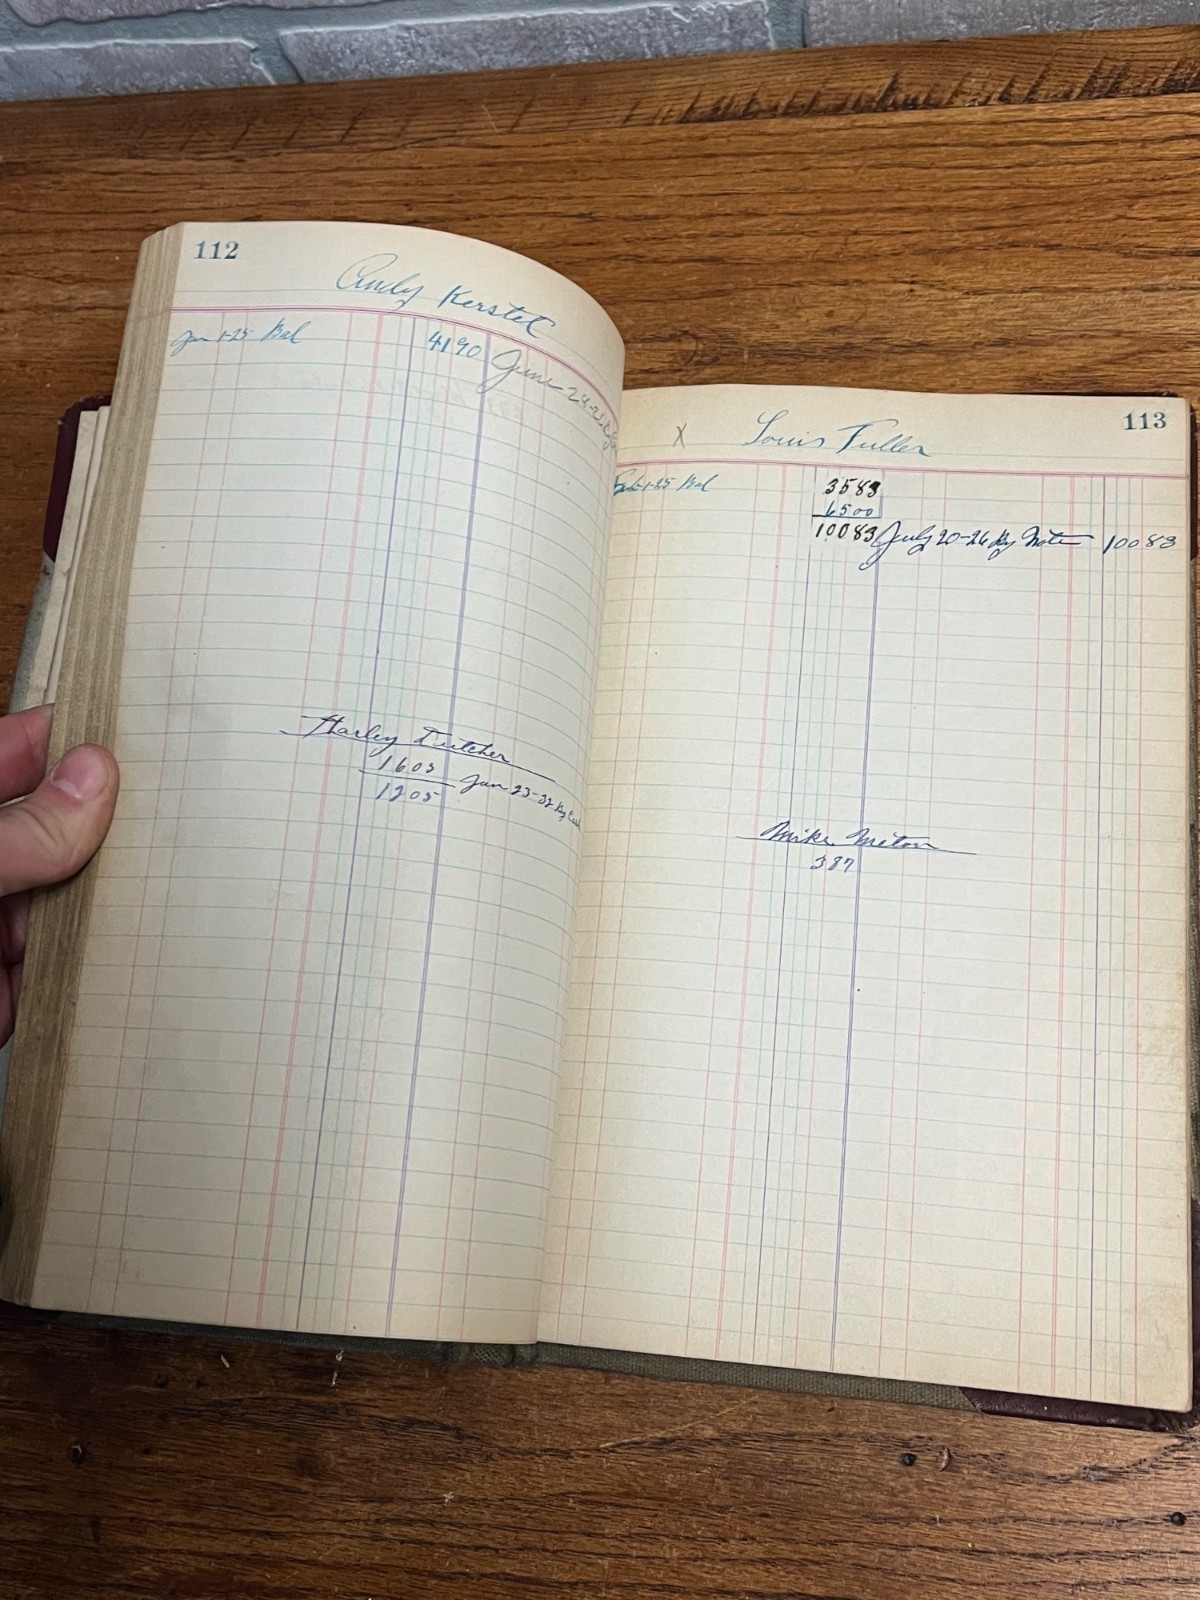 112
Andy Kerstet
Jan 1-25 Bal 4190 June 24-25
Harley Futcher
1605
1205 Jan 23-32 By Cash
113
X Louis Fuller
1-25 Bal 3583
6500
10083 July 20-26 By Note 10083
Mike Meton
387